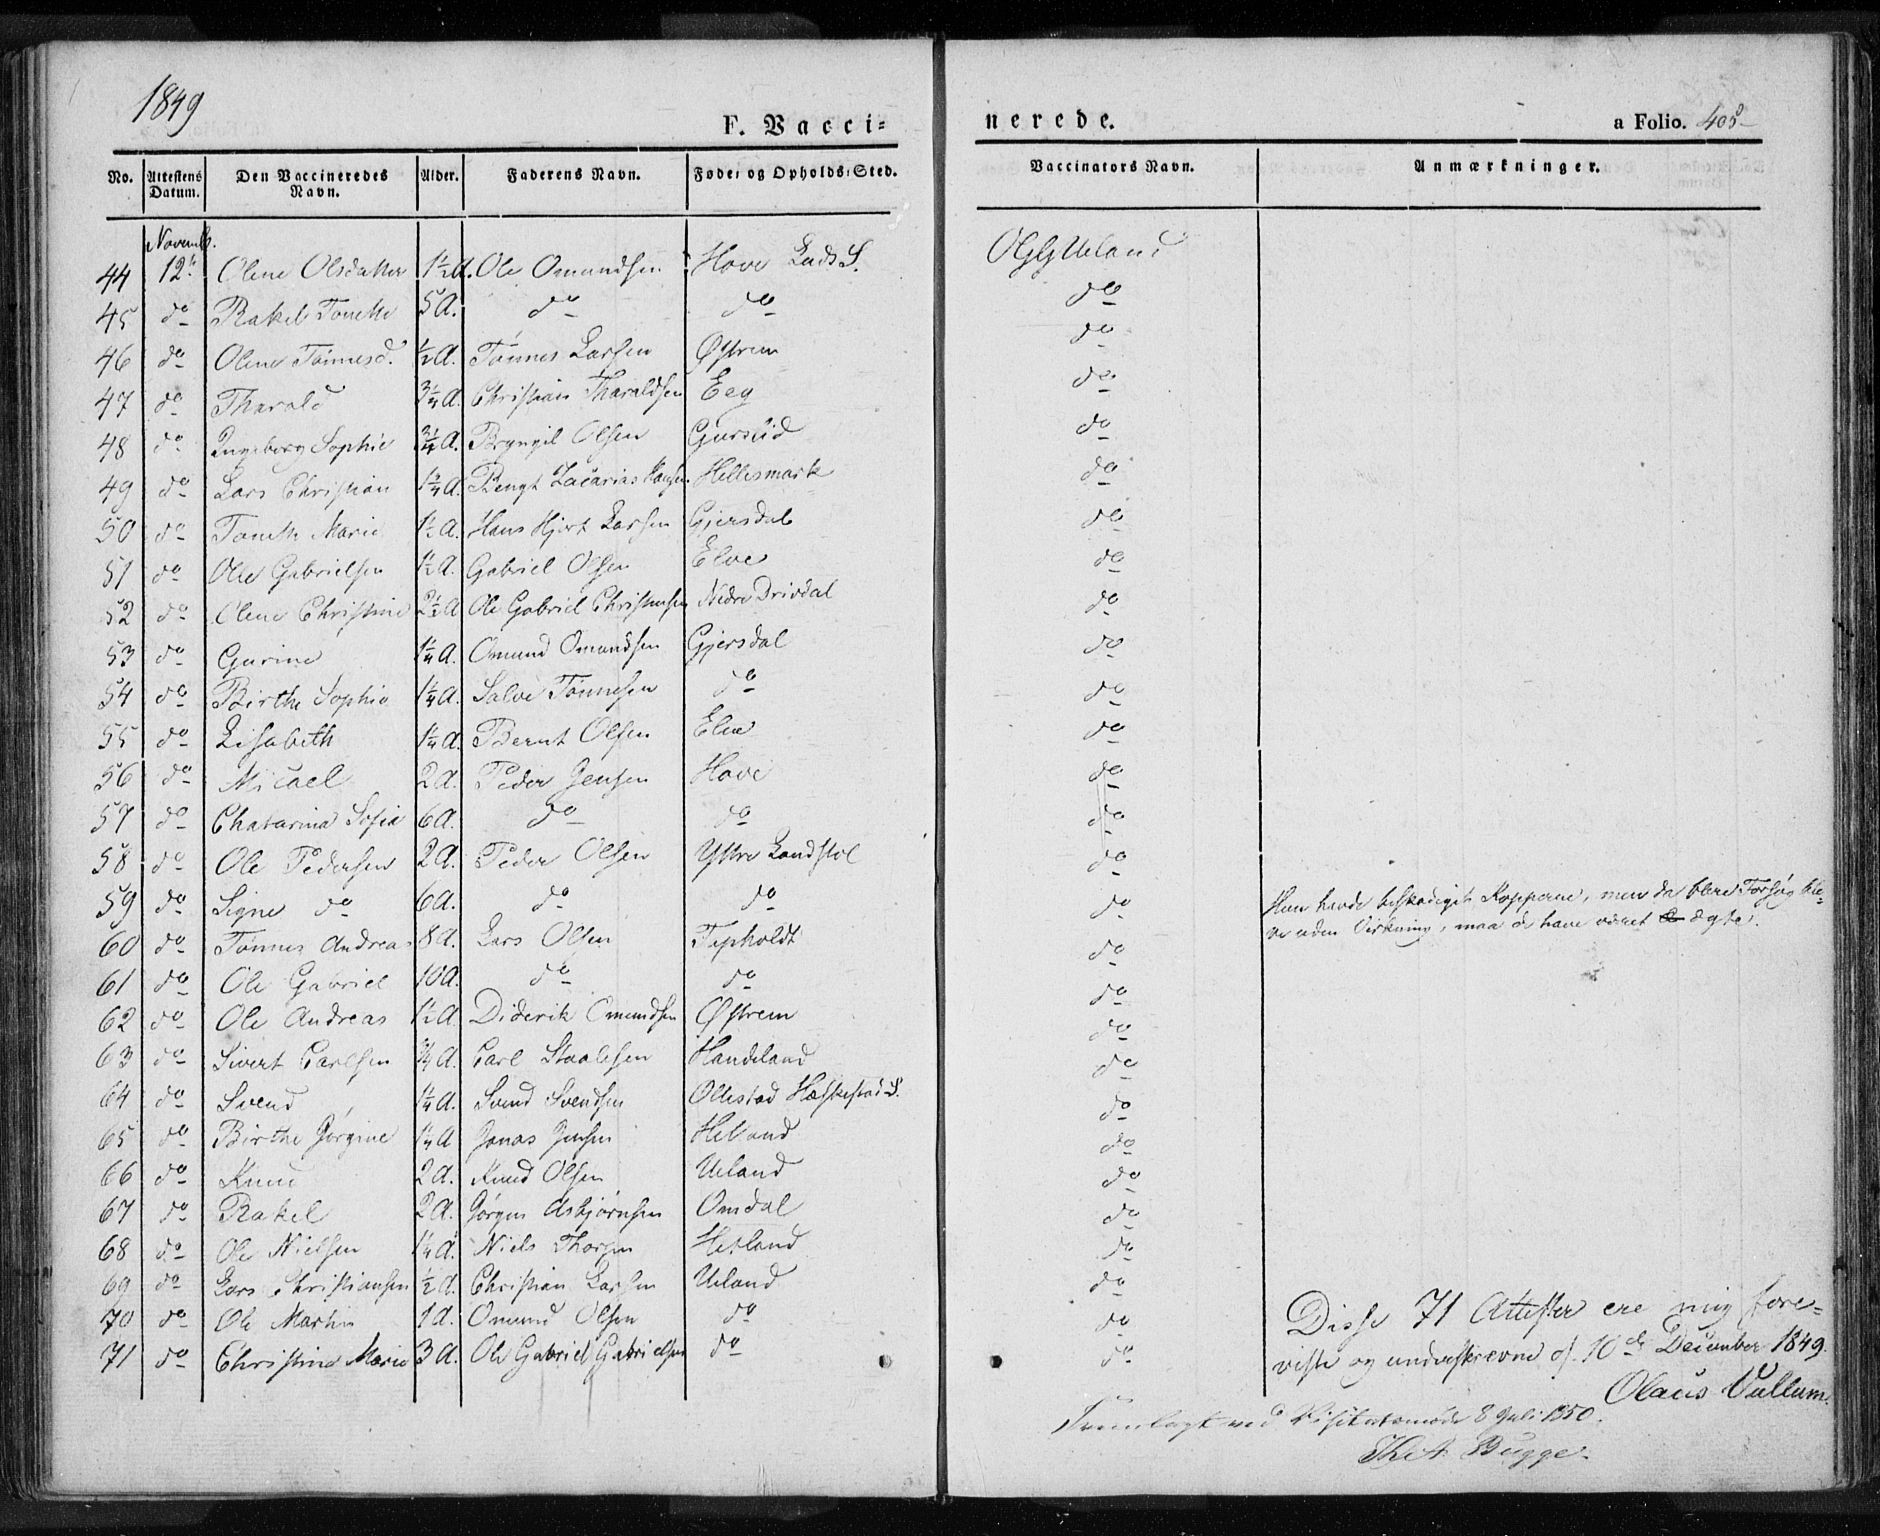 1849
F. Vacci= nerede. a Folio. 408
No. Attestens Datum. Den Vaccineredes Navn. Alder. Faderens Navn. Føde= og Opholds=Sted. Vaccinators Navn. Anmærkninger.
Novemb.
44 12te Olene Olsdatter 1½ A. Ole Omundsen Hove Lunds S. Ueland
45 do Rakel Tonette 5 A. do do do
46 do Olene Tønnesd. ½ A. Tønnes Larsen Østrem do
47 do Tharald 3¼ A. Christian Tharaldsen Eeg do
48 do Ingeborg Sophie A. Bryngil Olsen Gurslid do
49 do Lars Christian A. Bengt Zacarias Hansen Hellesmark do
50 do Tonette Marie 1½ A. Hans Hjort Larsen Gjersdal do
51 do Ole Gabrielsen 1½ A. Gabriel Olsen Elve do
52 do Olene Christine 2½ A Ole Gabriel Christensen Nedre Drivdal do
53 do Gurine 1¼ A. Omund Omundsen Gjersdal do
54 do Birthe Sophie 1¼ A. Salve Tønnesen do do
55 do Lisabeth 1¼ A. Bernt Olsen Elve do
56 do Micael 2 A. Peder Jensen Hove do
57 do Chatarina Sofia 6 A. do do do
58 do Ole Pedersen 2 A. Peder Olsen Yttre Landstol do
59 do Signe do 6 A. do do do Hun havde beskadiget Kopperne, men da flere Forsøg ble=
ve uden Virkning, maa de have været ægte.
60 do Tønnes Andreas 8 A. Lars Olsen Tepholdt do
61 do Ole Gabriel 10 A. do do do
62 do Ole Andreas 1½ A. Diderik Omundsen Østrem do
63 do Sivert Carlsen ¾ A. Carl Staalesen Handeland do
64 do Svend 1¼ A. Svend Svendsen Ollestad Hæskestad S. do
65 do Birthe Jørgine 1¼ A Jonas Jensen Hetland do
66 do Knud 2 A. Knud Olsen Ueland do
67 do Rakel 2 A. Jørgen Asbjørnsen Omdal do
68 do Ole Nielsen 1¼ A. Niels Thorsen Hetland do
69 do Lars Christiansen ½ A. Christian Larsen Ueland do
70 do Ole Martin 1 A. Omund Olsen do do
71 do Christine Marie 3 A. Ole Gabriel Gabrielsen do do
Disse 71 Attester ere mig fore=
viste og underskrevne d. 10de December 1849.
Olaus Vullum.
Fremlagt ved Visitatsmøde 8 Juli 1850.
Bugge.